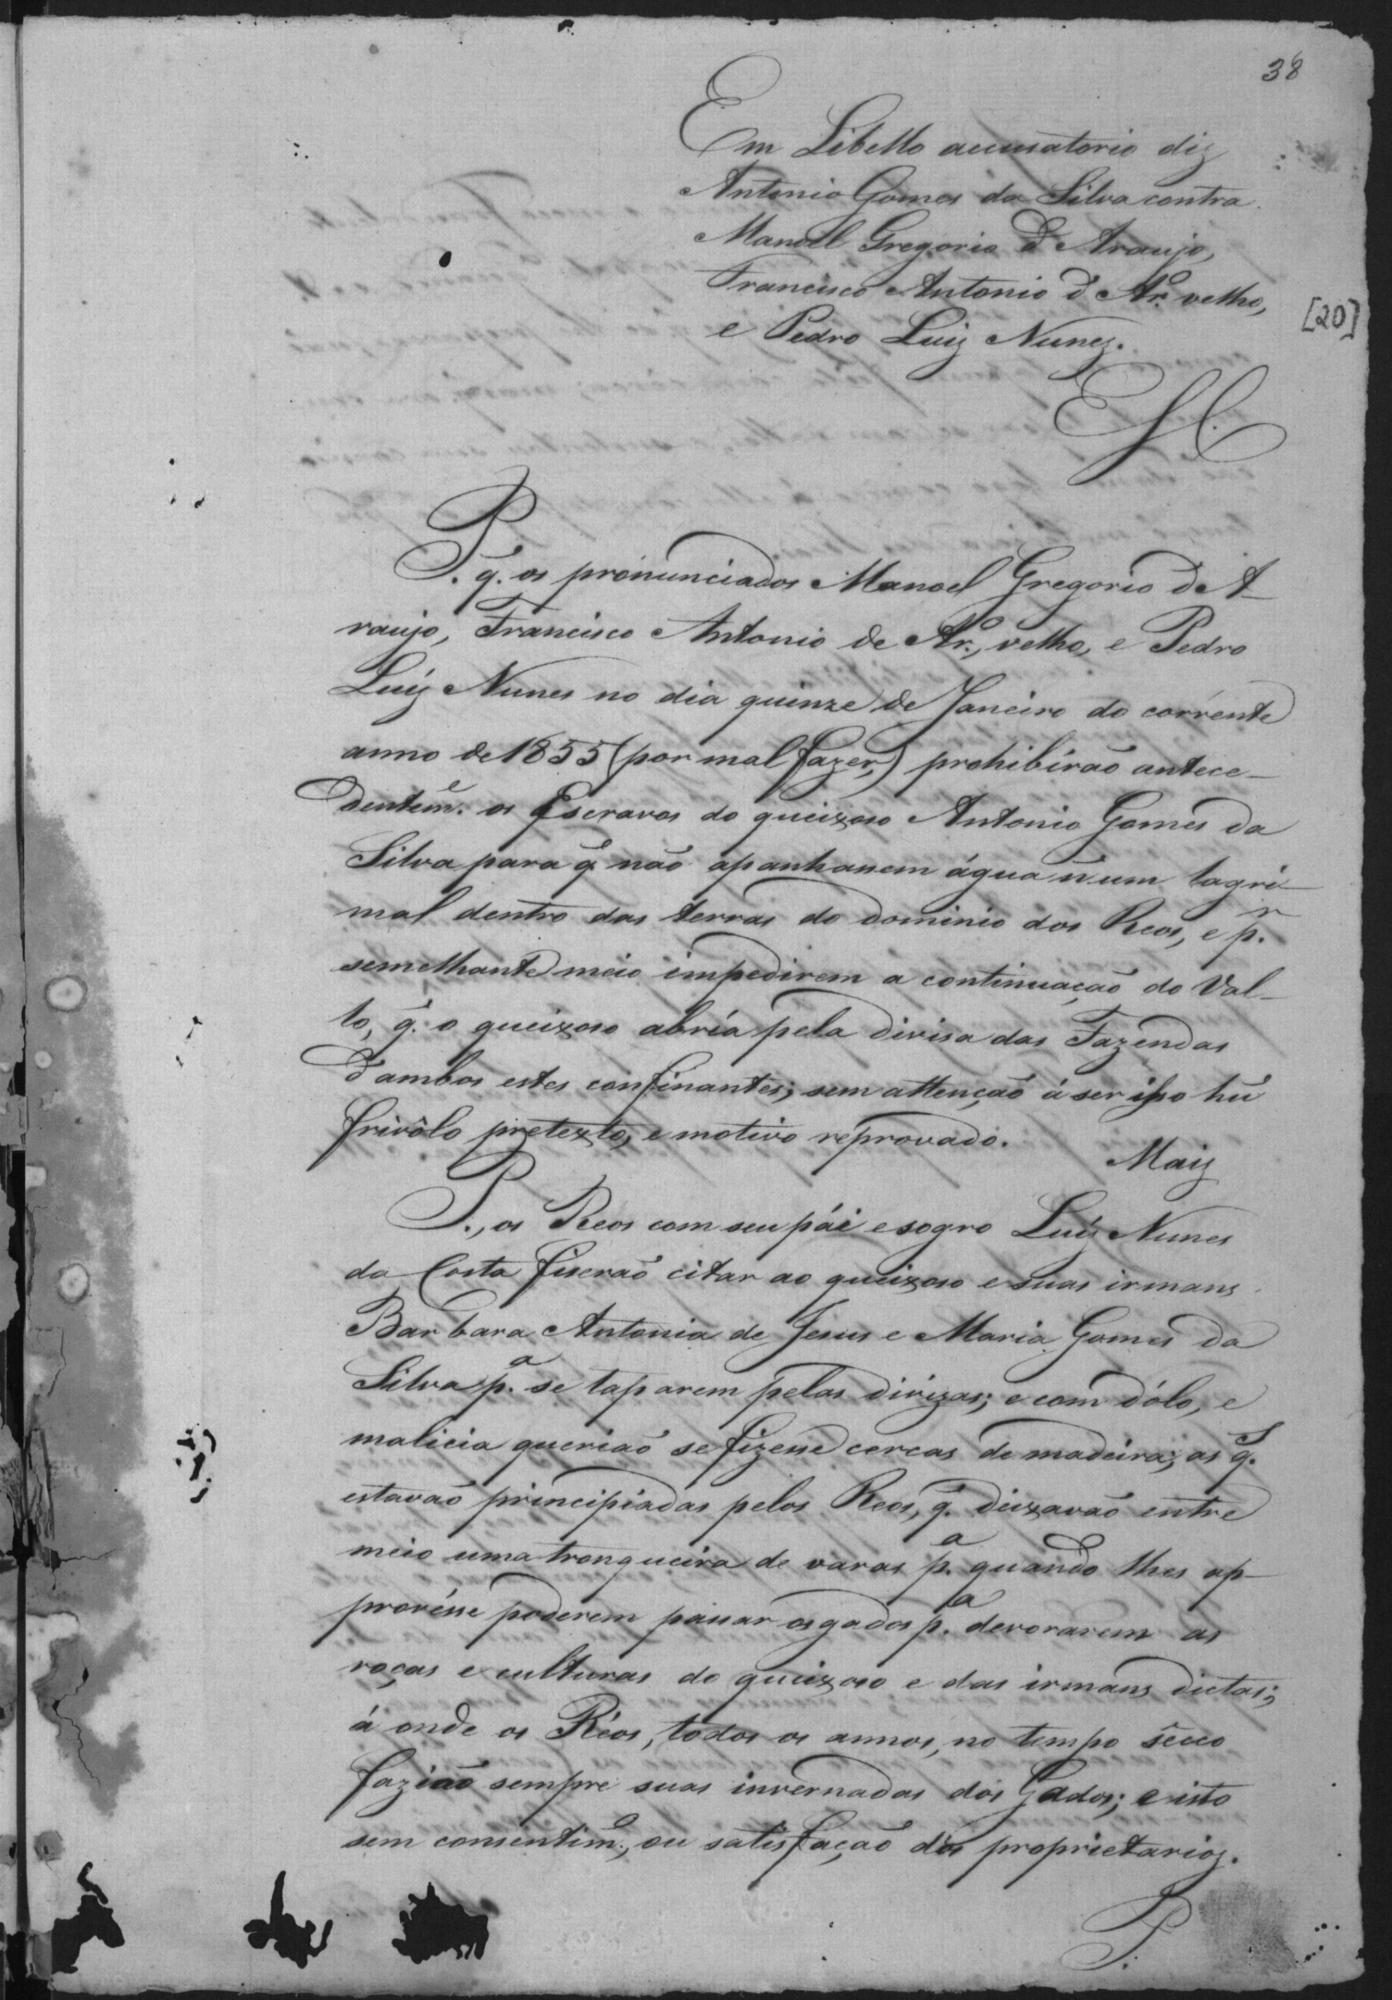 38
Em Libello accusatorio diz
Antonio Gomes da Silva contra
Manoel Gregorio d'Araujo,
Francisco Antonio d'Ar.º velho,
e Pedro Luiz Nunez.
[20]
E S C.
P. q̃. os pronunciados Manoel Gregorio de A-
raujo, Francisco Antonio de Ar.º, velho, e Pedro
Luiz Nunes no dia quinze de Janeiro do corrente
anno de 1855 (por mal fazer,) prohibirão antece-
dentem.e os Escravos do queixoso Antonio Gomes da
Silva para q̃ não apanhassem água n'um lagri-
mal dentro das terras do dominio dos Reos, e p.r
semelhante meio impedirem a continuação do Val-
lo, q̃. o queixoso abría pela divisa das Fazendas
d'ambos estes confinantes; sem attenção á ser isso hũ
frivôlo pretexto, e motivo reprovado.
Maiz
P., os Reos com seu pái e sogro Luiz Nunes
da Costa fiserão citar ao queixoso e suas irmans
Barbara Antonia de Jesus e Maria Gomes da
Silva p.a se taparem pelas divizas; e com dólo, e
malicia querião se fizesse cercas de madeira; as q̃.
estavão principiadas pelos Reos, q̃. deixavão entre
meio uma tronqueira de varas p.a quando lhes ap-
provésse poderem passar os gados p.a devorarem as
roças e culturas do queixoso e das irmans dictas;
á onde os Réos, todos os annos, no tempo sêcco
fazião sempre suas invernadas dos Gados; e isto
sem consentim.o, ou satisfação dos proprietarioz.
P.